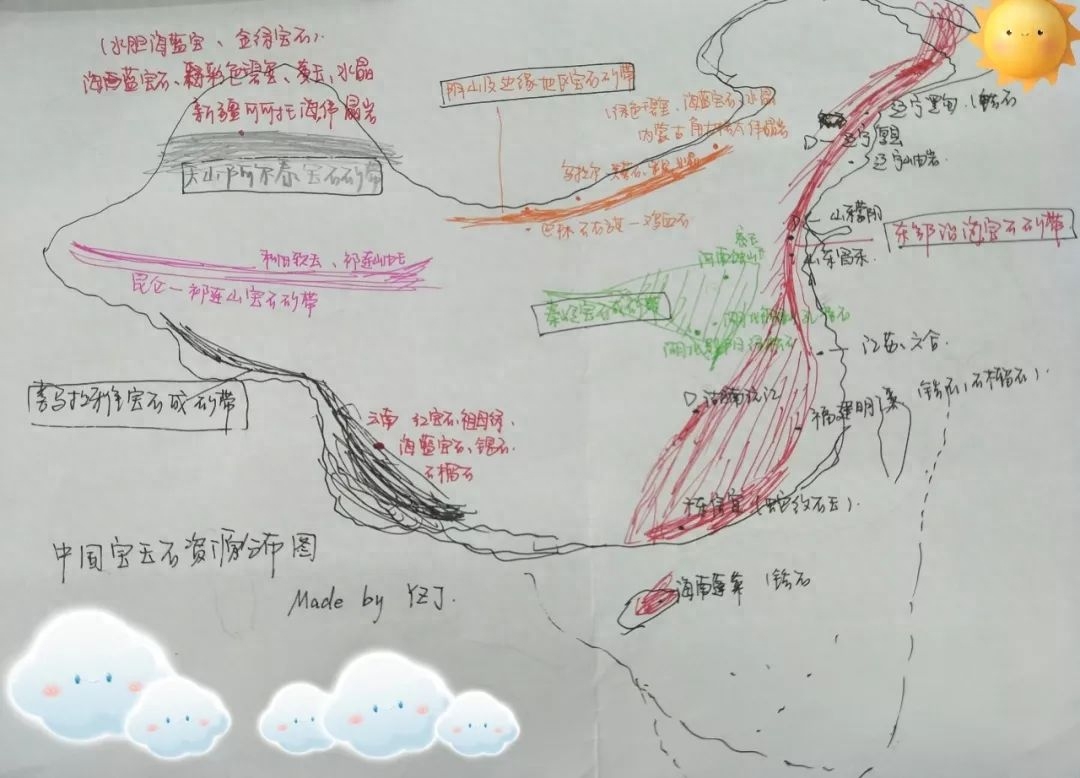 (水胆海蓝宝、金绿宝石).
海蓝宝石、彩色碧玺、黄玉、水晶
新疆可可托海伟晶岩
天山阿尔泰宝石矿带
阴山及边缘地区宝石矿带
(绿色碧玺、海蓝宝石、水晶
内蒙古角力格太伟晶岩
乌拉尔
巴林石 鸡血石
和田软玉、祁连山玉
昆仑—祁连山宝石矿带
喜马拉雅宝石成矿带
云南 红宝石、祖母绿、
海蓝宝石、锆石.
石榴石
秦岭宝石成矿带
河南独山玉
湖北
辽宁
辽宁岫岩.
山东蒙阴
山东昌乐
东部沿海宝石矿带
江苏、六合.
D 湖南沅江
福建明溪 (锆石,石榴石).
广东信宜 (蛇纹石玉).
海南蓬莱 锆石
中国宝玉石资源分布图
Made by YZJ.